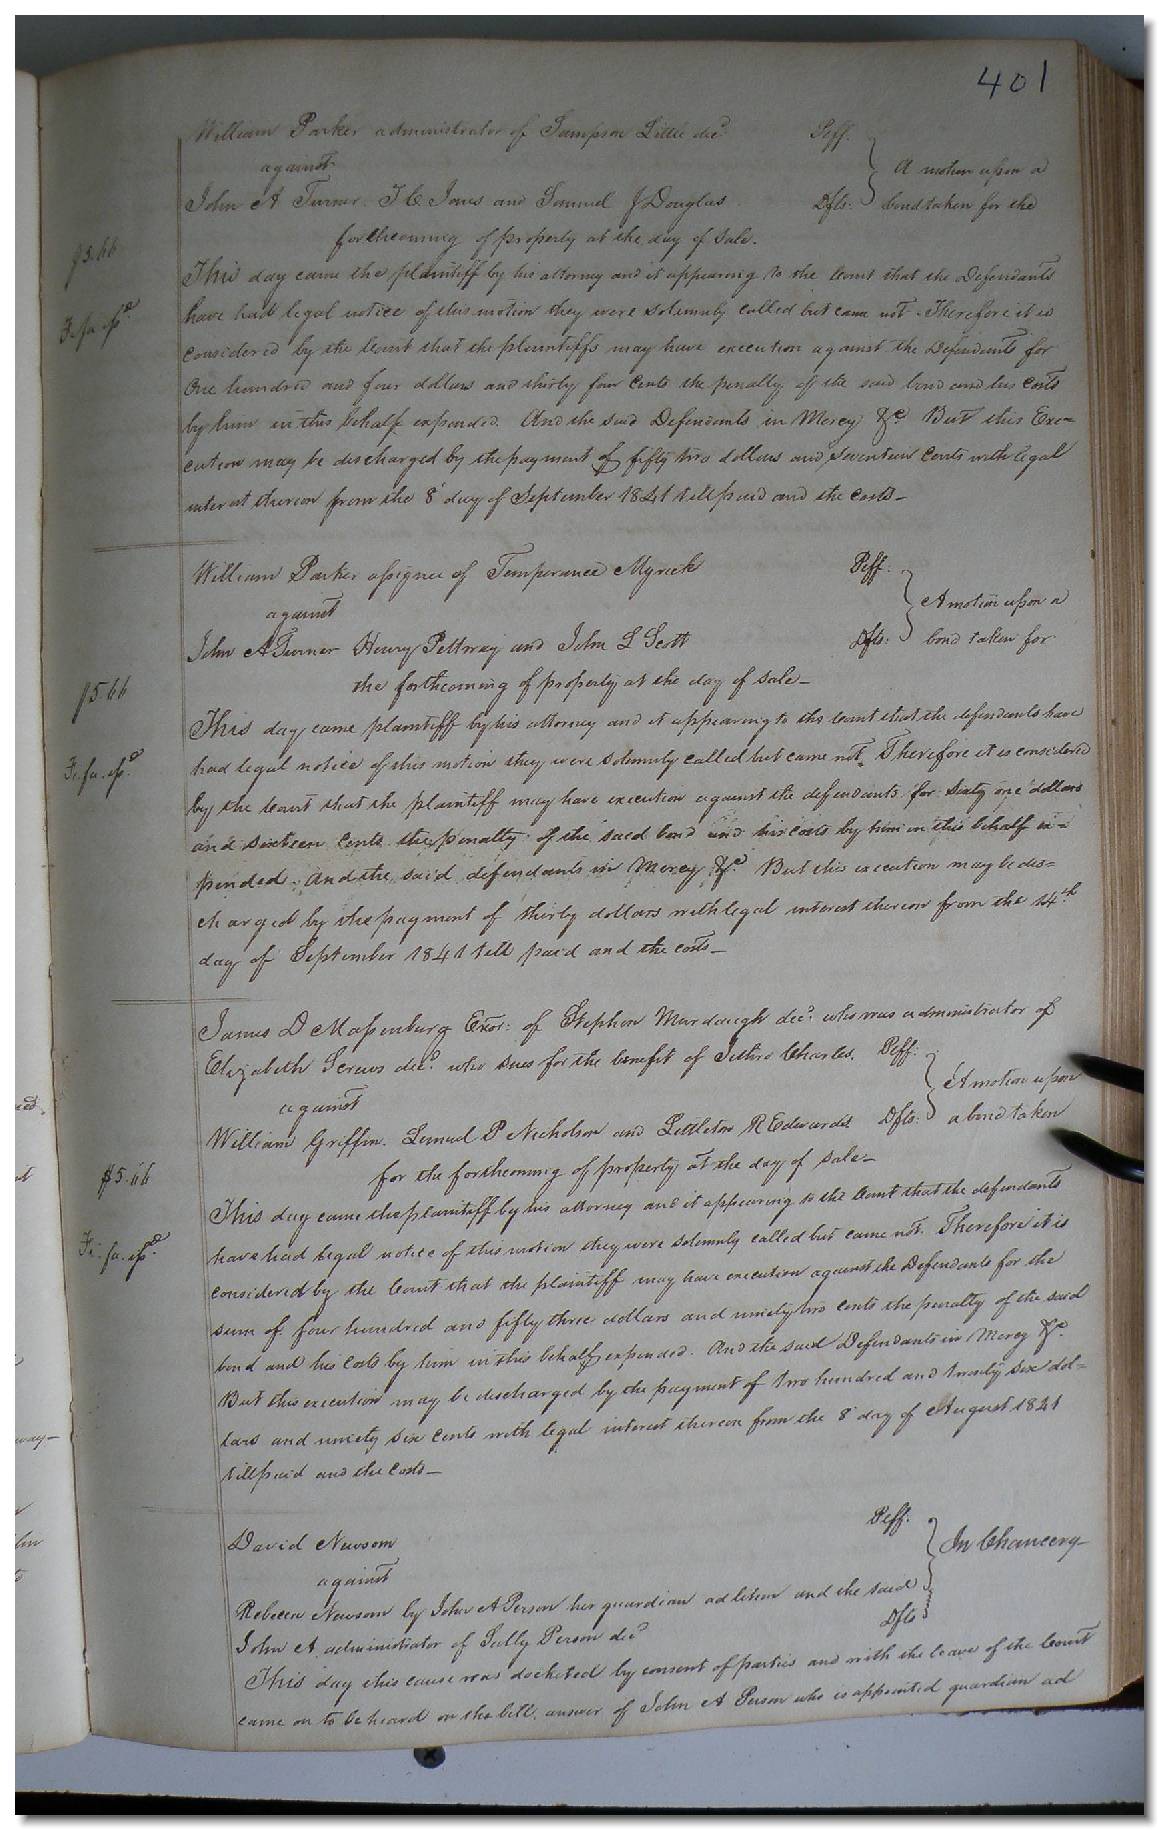 401
William Parker administrator of Sampson Little decd. Plff.
against
A motion upon a
John A Turner. T. C. Jones and Samuel J Douglas Dfts. bond taken for the
forthcoming of property at the day of sale.
$5.66
This day came the plaintiff by his attorney and it appearing to the Court that the Defendants
have had legal notice of this motion they were solemnly called but came not. Therefore it is
Fi. fa. ipd.
considered by the Court that the plaintiffs may have execution against the Defendants for
One hundred and four dollars and thirty four Cents the penalty of the said bond and his costs
by him in this behalf expended. And the said Defendants in Mercy &c. But this Exe=
cution may be discharged by the payment of fifty two dollars and seventeen Cents with legal
interest thereon from the 8 day of September 1841 till paid and the costs—
William Parker assignee of Temperance Myrick Plff.
against
A motion upon a
John A Turner Henry Pettway and John L Scott Dfts. bond taken for
the forthcoming of property at the day of sale—
$5.66
This day came plaintiff by his attorney and it appearing to the Court that the defendants have
had legal notice of this motion they were solemnly called but came not. Therefore it is considered
Fi. fa. ipd.
by the Court that the plaintiff may have execution against the defendants for sixty one dollars
and sixteen Cents the penalty of the said bond and his costs by him in this behalf ex=
pended. And the said defendants in Mercy &c. But this execution may be dis=
charged by the payment of thirty dollars with legal interest thereon from the 14th
day of September 1841 till paid and the costs—
James D Massenburg Exor: of Stephen Murdaugh decd. who was administrator of
Elizabeth Screws decd. who sues for the benefit of Jethro Charles. Plff.
against
A motion upon
William Griffin. Lemuel P Nicholson and Littleton R Edwards. Dfts. a bond taken
for the forthcoming of property at the day of sale—
$5.66
This day came the plaintiff by his attorney and it appearing to the Court that the defendants
have had legal notice of this motion they were solemnly called but came not. Therefore it is
Fi. fa. ipd.
considered by the Court that the plaintiff may have execution against the Defendants for the
sum of four hundred and fifty three dollars and ninety two cents the penalty of the said
bond and his Costs by him in this behalf expended. And the said Defendants in Mercy &c.
But this execution may be discharged by the payment of two hundred and twenty six dol=
lars and ninety six cents with legal interest thereon from the 8 day of August 1841
till paid and the costs—
David Newsom Plff.
against
In Chancery
Rebecca Newsom by John A Person her guardian ad litem and the said
John A. administrator of Sally Person decd Dfts
This day this cause was docketed by consent of parties and with the leave of the Court
came on to be heard on the bill, answer of John A Person who is appointed guardian ad